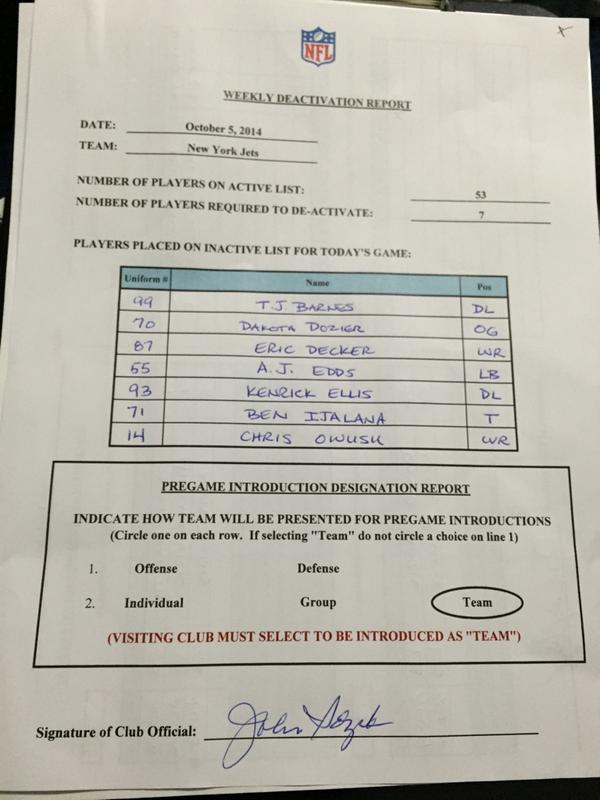 NFL
WEEKLY DEACTIVATION REPORT
DATE: October 5, 2014
TEAM: New York Jets
NUMBER OF PLAYERS ON ACTIVE LIST: 53
NUMBER OF PLAYERS REQUIRED TO DE-ACTIVATE: 7
PLAYERS PLACED ON INACTIVE LIST FOR TODAY'S GAME:
Uniform # Name Pos
99 T.J. BARNES DL
70 DAKOTA DOZIER OG
87 ERIC DECKER WR
55 A.J. EDDS LB
93 KENRICK ELLIS DL
71 BEN IJALANA T
14 CHRIS OWUSU WR
PREGAME INTRODUCTION DESIGNATION REPORT
INDICATE HOW TEAM WILL BE PRESENTED FOR PREGAME INTRODUCTIONS
(Circle one on each row. If selecting "Team" do not circle a choice on line 1)
1. Offense Defense
2. Individual Group Team
(VISITING CLUB MUST SELECT TO BE INTRODUCED AS "TEAM")
Signature of Club Official: John